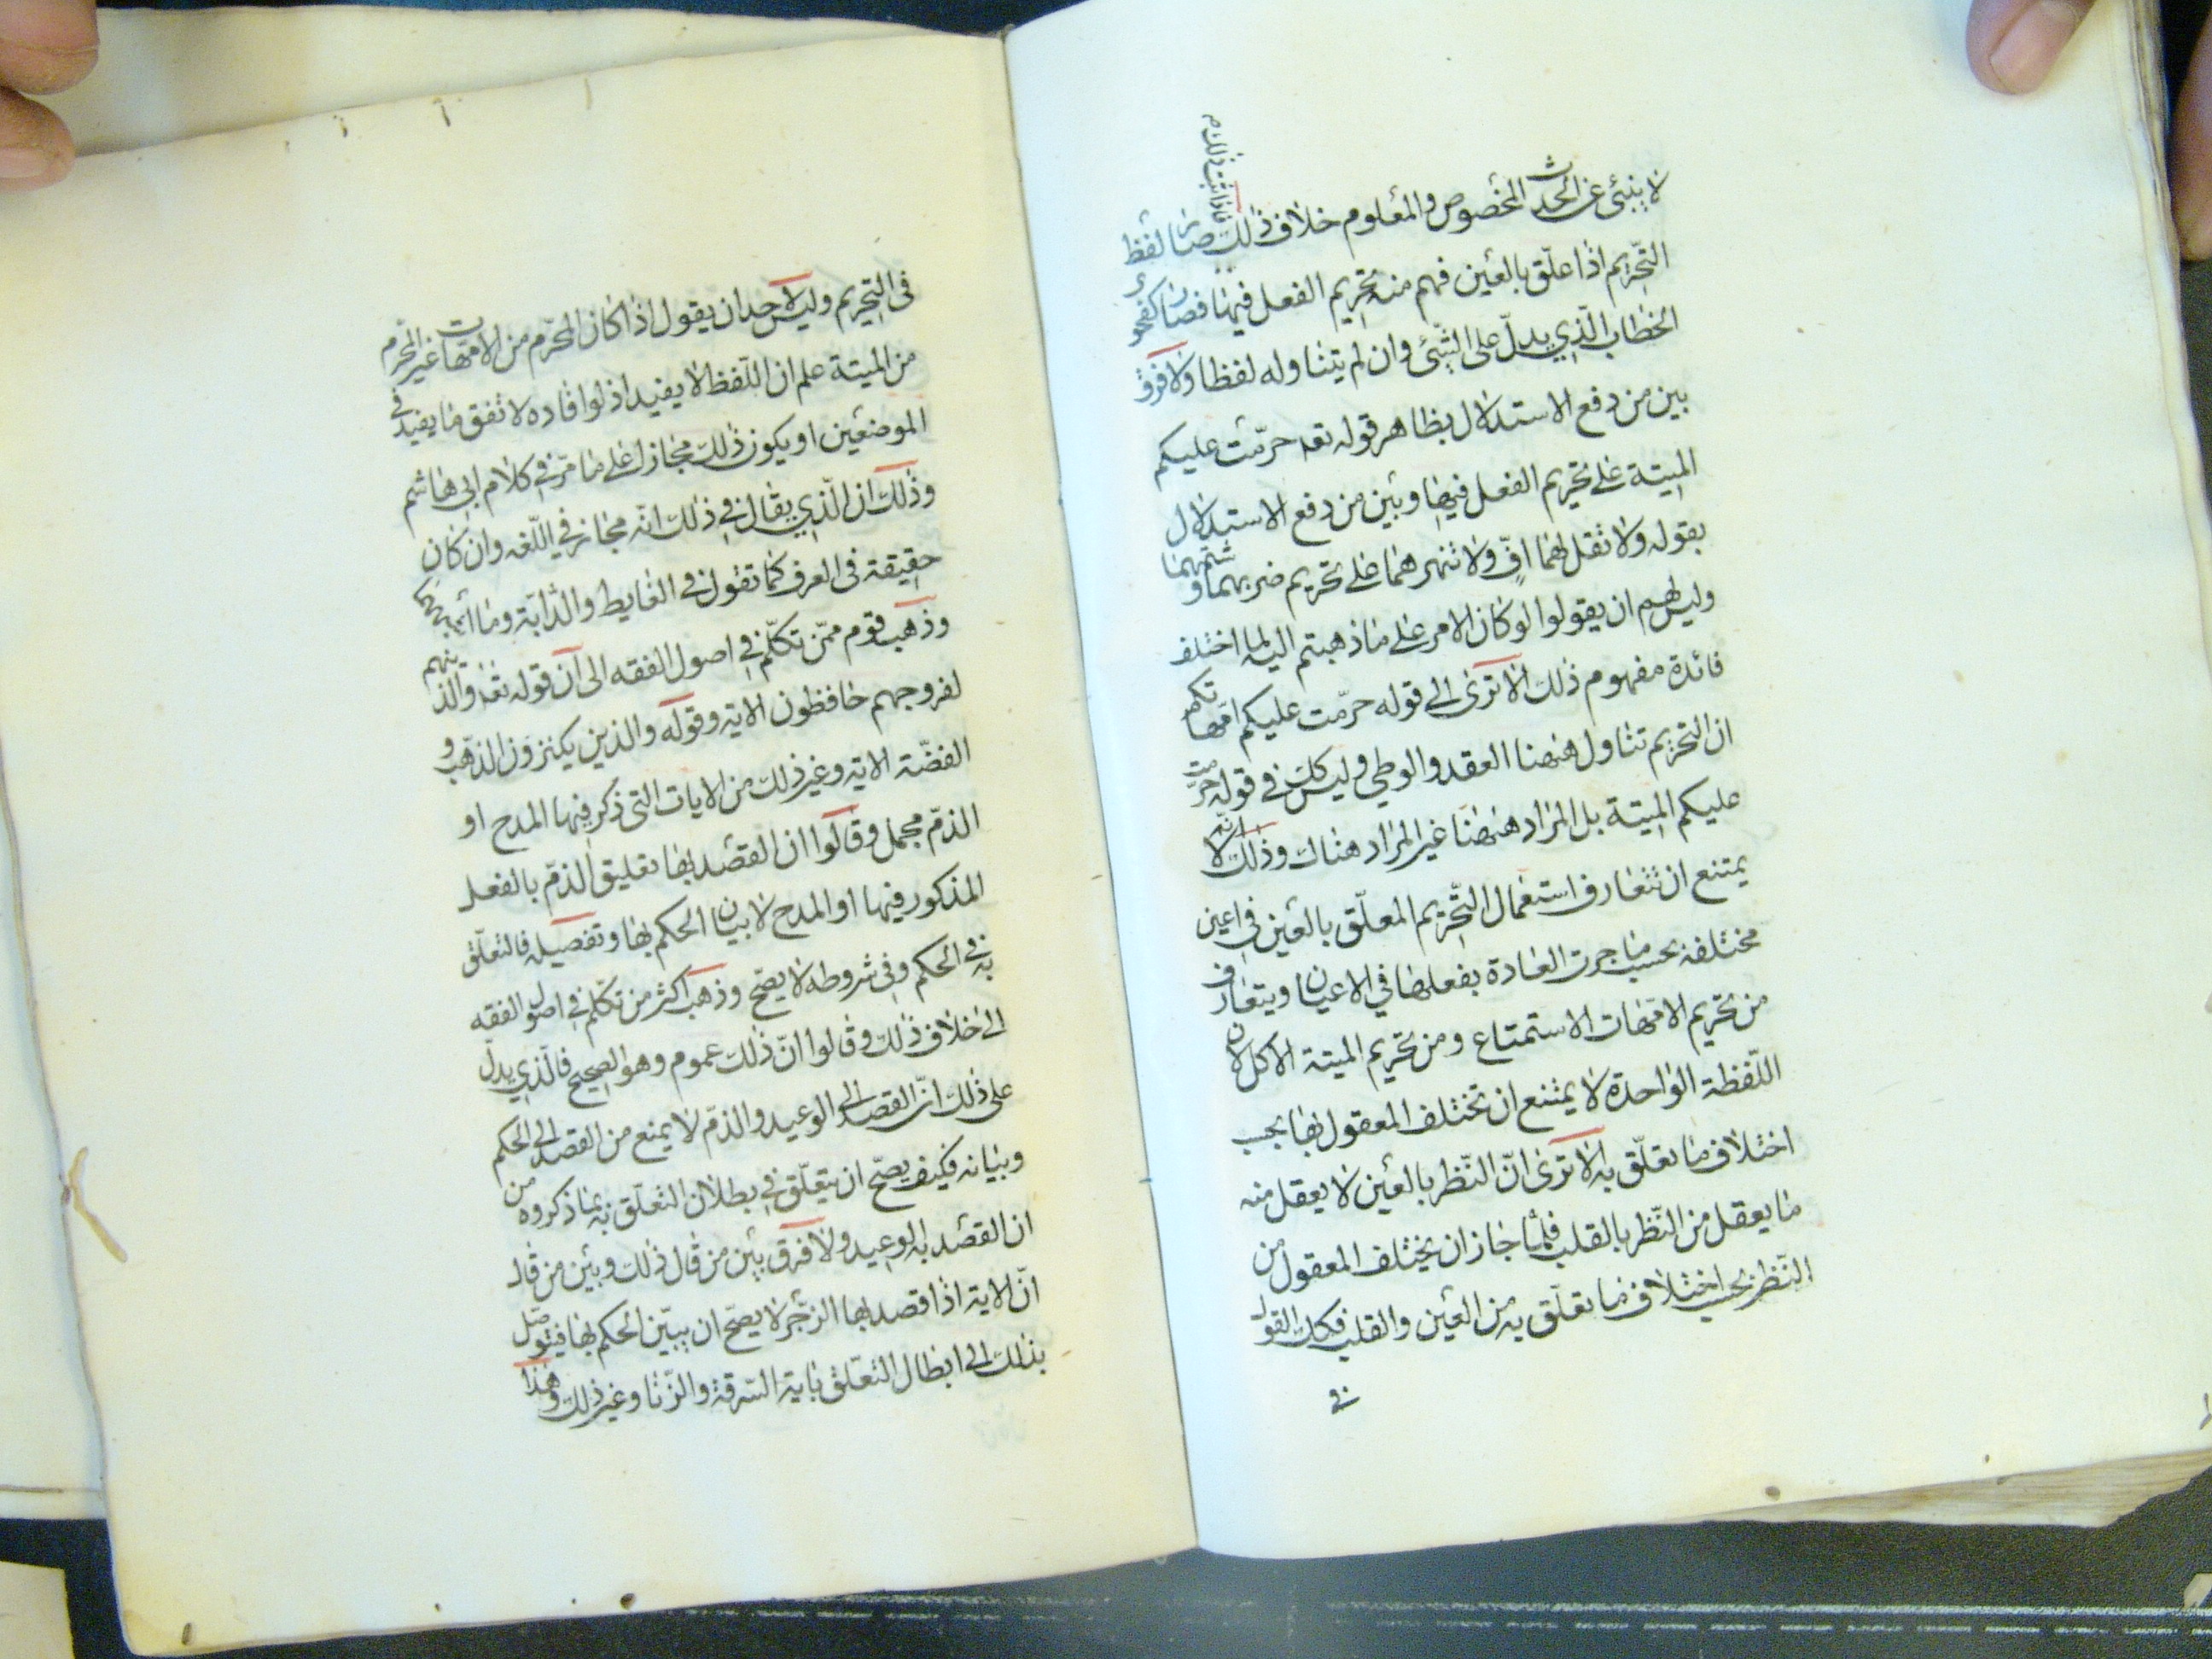 لا ينبئ عن الحدث المخصوص والمعلوم خلاف ذلك صار لفظ
فاذا ثبت ذلك
التحريم اذا علق بالعين فهم منه تحريم الفعل فيها فصار كفحوى
الخطاب الذي يدل على الشئ وان لم يتناوله لفظا ولا فرق
بين من دفع الاستدلال بظاهر قوله تعه حرمت عليكم
الميتة على تحريم الفعل فيها وبين من دفع الاستدلال
بقوله ولا تقل لهما اف ولا تنهرهما على تحريم ضربهما وشتمهما
وليس لهم ان يقولوا لو كان الامر على ما ذهبتم اليه لما اختلف
فائدة مفهوم ذلك الا ترى الى قوله حرمت عليكم امهاتكم
ان التحريم تناول ههنا العقد والوطي وليس كك في قوله حرمت
عليكم الميتة بل المراد ههنا غير المراد هناك وذلك لانه لا
يمتنع ان تتعارف استعمال التحريم المعلق بالعين في اعين
مختلفة بحسب ما جرت العادة بفعلها في الاعيان ويتعارف
من تحريم الامهات الاستمتاع ومن تحريم الميتة الاكل لان
اللفظة الواحدة لا يمتنع ان تختلف المعقول بها بحسب
اختلاف ما تعلق به الا ترى ان النظر بالعين لا يعقل منه
ما يعقل من النظر بالقلب فلما جاز ان يختلف المعقول من
النظر بحسب اختلاف ما تعلق به من العين والقلب فكك القول
في
في التحريم وليس لاحد ان يقول اذا كان المحرم من الامهات غير المحرم
من الميتة علم ان اللفظ لا يفيد اذ لو افاده لاتفق ما يفيد في
الموضعين او يكون ذلك مجازا على ما مر في كلام ابي هاشم
وذلك ان الذي يقال في ذلك انه مجاز في اللغه وان كان
حقيقة في العرف كما تقول في الغايط والدابة وما اشبههما
وذهب قوم ممن تكلم في اصول الفقه الى ان قوله تعه والذينهم
لفروجهم حافظون الاية وقوله والذين يكنزون الذهب و
الفضة الاية وغير ذلك من الايات التي ذكر فيها المدح او
الذم مجمل وقالوا ان القصد بها تعليق الذم بالفعل
المذكور فيها او المدح لا بيان الحكم بها وتفصيله فالتعلق
به في الحكم وفي شروطه لا يصح وذهب اكثر من تكلم في اصول الفقه
الى خلاف ذلك وقالوا ان ذلك عموم وهو الصحيح فالذي يدل
على ذلك ان القصد الى الوعيد والذم لا يمنع من القصد الى الحكم
وبيانه فكيف يصح ان يتعلق في بطلان التعلق به بما ذكروه من
ان القصد به الوعيد ولا فرق بين من قال ذلك وبين من قال
ان الاية اذا قصد بها الزجر لا يصح ان يبين الحكم بها فيتوصل
بذلك الى ابطال التعلق باية السرقة والزنا وغير ذلك وهذا